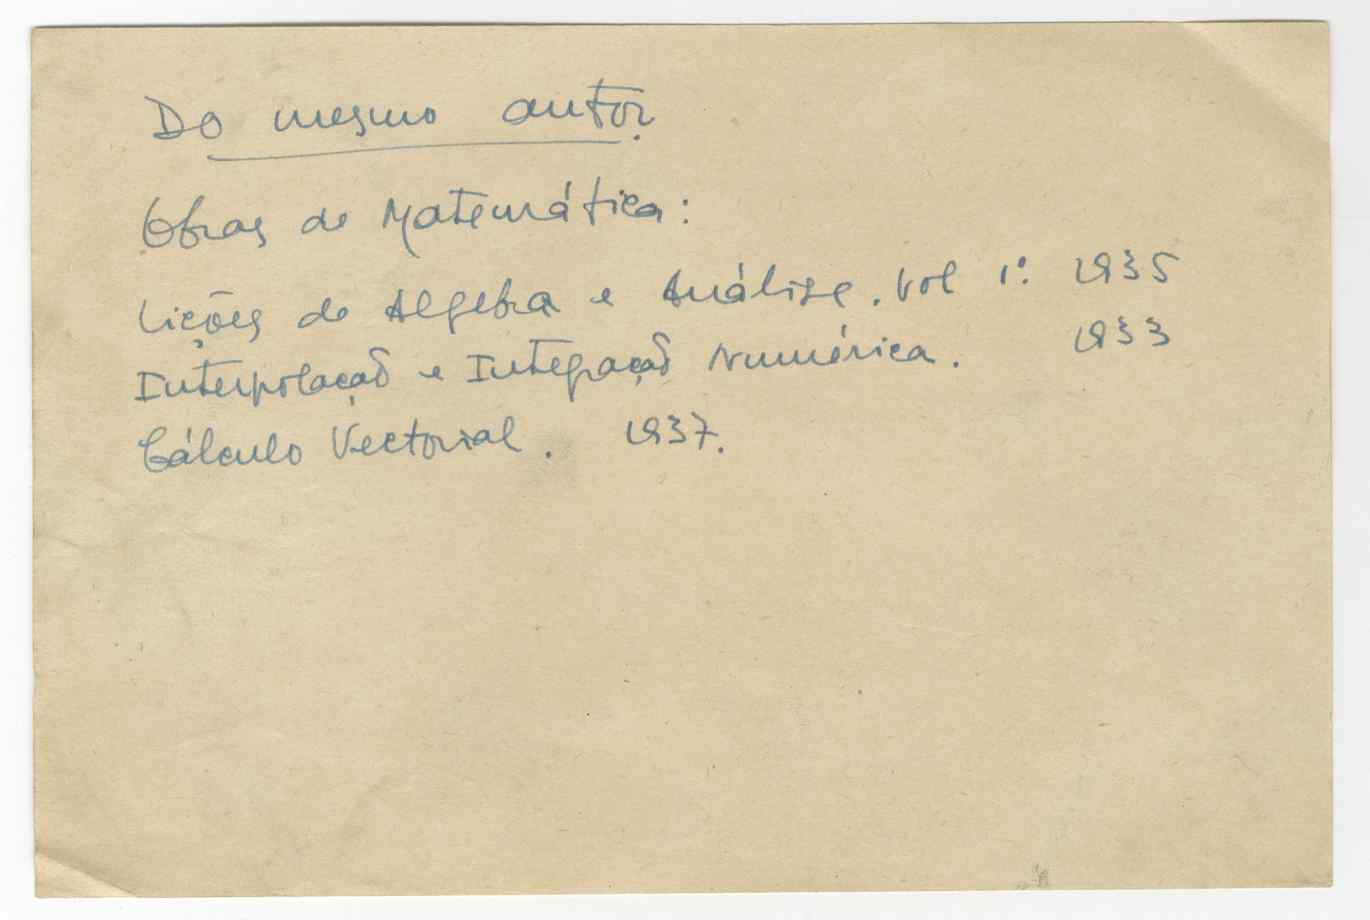 Do mesmo autor.
Obras de Matemática:
Lições de Algebra e Análise. Vol 1º: 1935
Interpolação e Integração Numérica. 1933
Cálculo Vectorial. 1937.